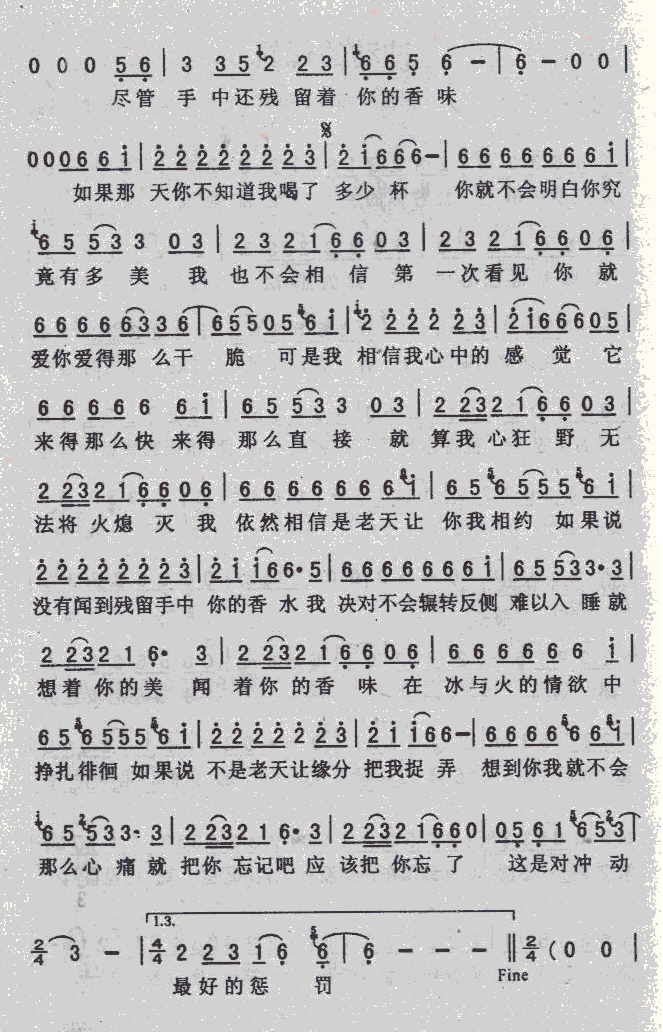 0 0 0 5 6 | 3 3 5 2 2 3 | 6 6 5 6 – | 6 – 0 0 |
尽管 手中还残留着 你的香味
0 0 0 6 6 i | 2 2 2 2 2 2 2 3 | 2 i 6 6 6 – | 6 6 6 6 6 6 6 i |
如果那 天你不知道我喝了 多少杯 你就不会明白你究
6 5 5 3 3 0 3 | 2 3 2 1 6 6 0 3 | 2 3 2 1 6 6 0 6 |
竟有多美 我 也不会相信 第 一次看见你 就
6 6 6 6 6 3 3 6 | 6 5 5 0 5 6 i | 2 2 2 2 2 3 | 2 i 6 6 6 0 5 |
爱你爱得那么干脆 可是我 相信我心中的感觉 它
6 6 6 6 6 6 i | 6 5 5 3 3 0 3 | 2 2 3 2 1 6 6 0 3 |
来得那么快 来得 那么直接 就 算我心狂野 无
2 2 3 2 1 6 6 0 6 | 6 6 6 6 6 6 6 i | 6 5 6 5 5 5 6 i |
法将火熄灭 我 依然相信是老天让 你我相约 如果说
2 2 2 2 2 2 2 3 | 2 i i 6 6 · 5 | 6 6 6 6 6 6 6 i | 6 5 5 3 3 · 3 |
没有闻到残留手中 你的香水 我 决对不会辗转反侧 难以入睡 就
2 2 3 2 1 6 · 3 | 2 2 3 2 1 6 6 0 6 | 6 6 6 6 6 6 i |
想着你的美 闻 着你的香味 在 冰与火的情欲中
6 5 6 5 5 5 6 i | 2 2 2 2 2 2 3 | 2 i i 6 6 – | 6 6 6 6 6 6 i |
挣扎徘徊 如果说 不是老天让缘分 把我捉弄 想到你我就不会
6 5 5 3 3 · 3 | 2 2 3 2 1 6 · 3 | 2 2 3 2 1 6 6 0 | 0 5 6 1 6 5 3 |
那么心痛 就 把你忘记吧 应 该把你忘了 这是对冲动
1.3.
2/4 3 – | 4/4 2 2 3 1 6 6 | 6 – – – || 2/4 ( 0 0 |
最好的惩罚
Fine